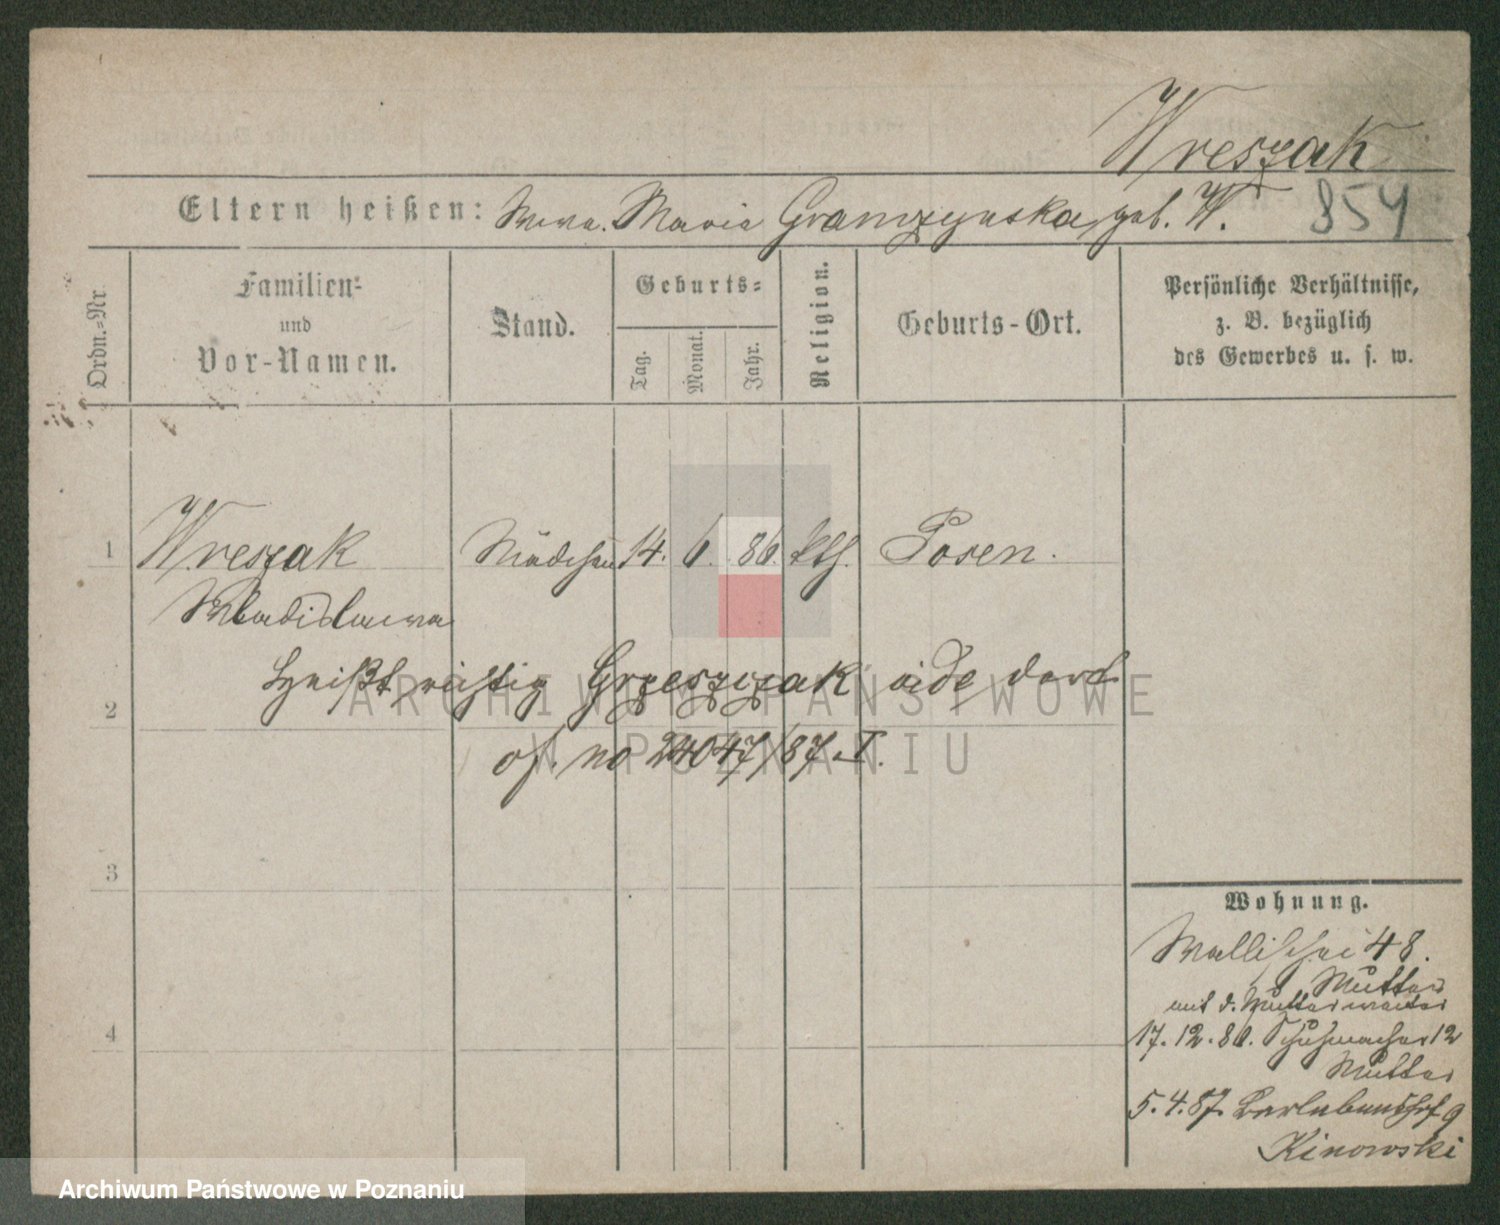 Wreszak
Eltern heißen: Wwe. Maria Gramzynska, geb. W. 854
Ordn.-Nr.
Familien- und Vor-Namen.
Stand.
Geburts-
Tag. Monat. Jahr.
Religion.
Geburts-Ort.
Persönliche Verhältnisse,
z. B. bezüglich
des Gewerbes u. s. w.
1 Wreszak Mädchen 14. 6. 86. kth. Posen.
Wladislawa
Heißt richtig Grzeszczak vide dort
2
cf. no 24047/87. I.
3
Wohnung.
Wallischei 48.
Mutter
mit d. Mutter weiter
4
17.12.86. Schuhmacher 12
Mutter
5.4.87.
9
Kinowski
ARCHIWUM PAŃSTWOWE
W POZNANIU
Archiwum Państwowe w Poznaniu